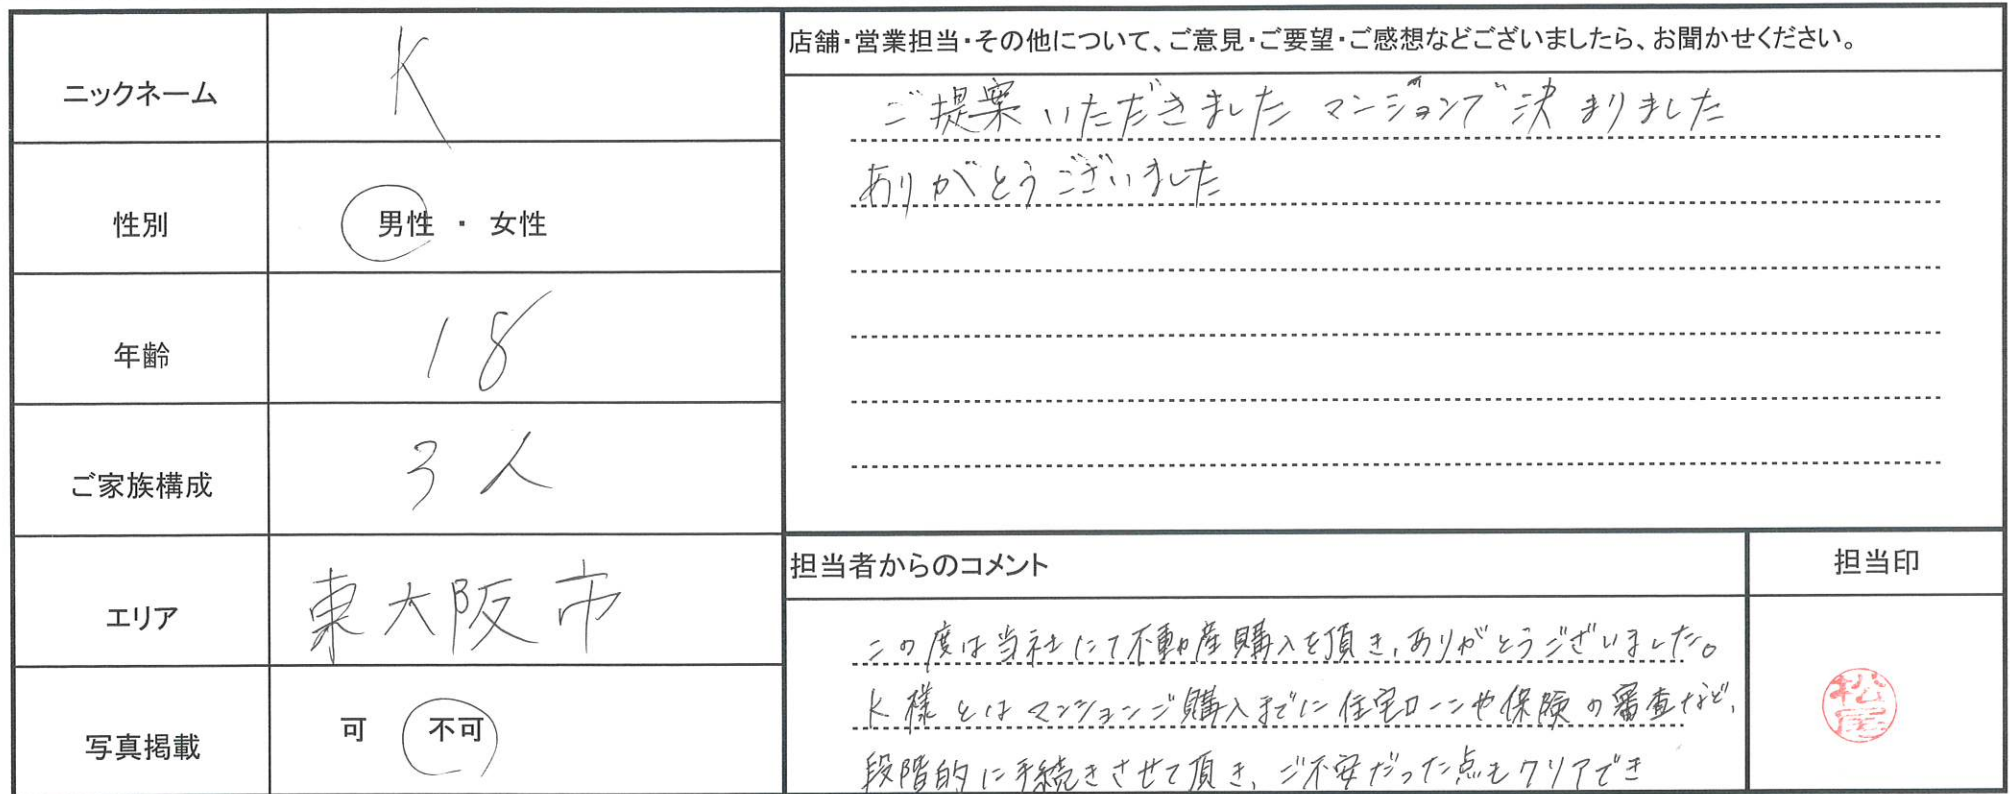 ニックネーム
K
性別
男性 ・ 女性
年齢
18
ご家族構成
3人
エリア
東大阪市
写真掲載
可 不可
店舗・営業担当・その他について、ご意見・ご要望・ご感想などございましたら、お聞かせください。
ご提案いただきましたマンションで決まりました
ありがとうございました
担当者からのコメント
この度は当社にて不動産購入を頂き、ありがとうございました。
K様とはマンションご購入までに住宅ローンや保険の審査など、
段階的に手続きさせて頂き、ご不安だった点もクリアでき
担当印
松尾